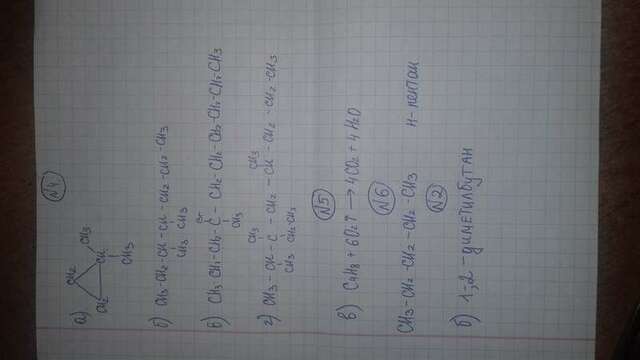 №4
а) CH2
CH2 CH CH3
CH3
б) CH3-CH2-CH-CH-CH2-CH2-CH3
CH3 CH3
Br
в) CH3-CH2-CH2-C-CH2-CH2-CH2-CH2-CH2-CH3
CH3
CH3 CH3
г) CH3-CH-C-CH2-CH-CH2-CH2-CH3
CH3 CH2-CH3
№5
в) C4H8+6O2↑→4CO2+4H2O
№6
CH3-CH2-CH2-CH2-CH3 н-пентан
№2
б) 1;2-диметилбутан